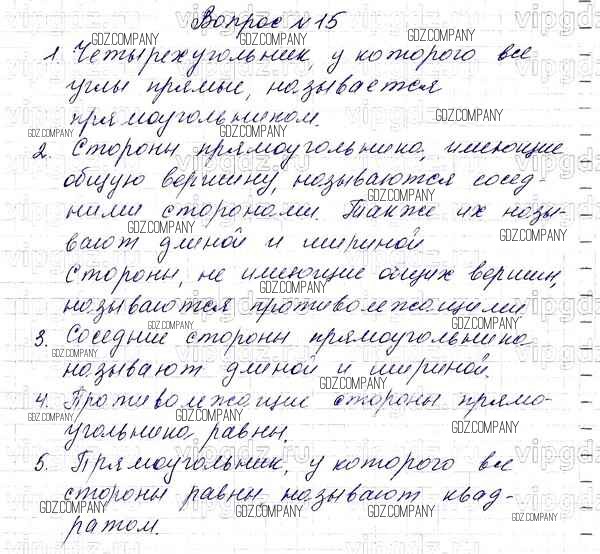 Вопрос №15
1. Четырехугольник, у которого все
углы прямые, называется
прямоугольником.
2. Стороны прямоугольника, имеющие
общую вершину, называются сосед-
ними сторонами. Также их назы-
вают длиной и шириной
Стороны, не имеющие общих вершин,
называются противолежащими
3. Соседние стороны прямоугольника
называют длиной и шириной.
4. Противолежащие стороны прямо-
угольника равны.
5. Прямоугольник, у которого все
стороны равны, называют квад-
ратом.